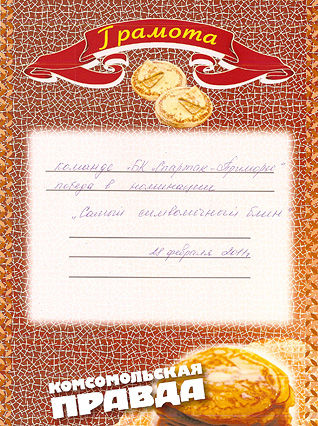 Грамота
команде "БК Спартак-Приморье"
победа в номинации
"Самый символичный блин
28 февраля 2011г
КОМСОМОЛЬСКАЯ
ПРАВДА